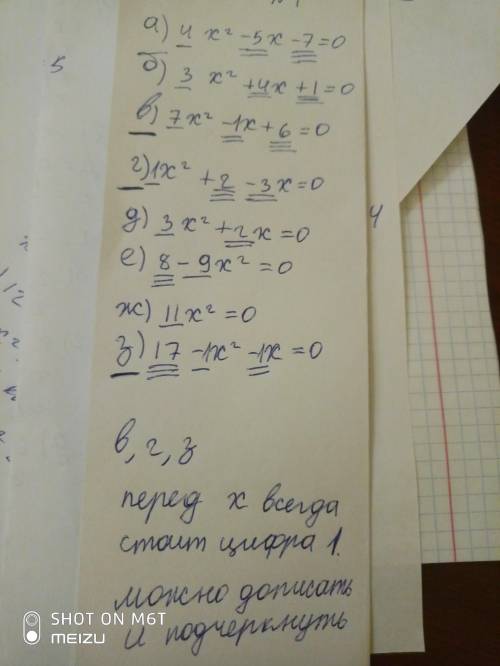 5
а) 4x² -5x -7=0
б) 3x² +4x +1=0
в) 7x² -1x+6=0
г) 1x² +2 -3x=0
4
д) 3x²+2x=0
е) 8-9x²=0
ж) 11x²=0
з) 17 -1x² -1x=0
в, г, з
перед x всегда
стоит цифра 1.
можно дописать
и подчеркнуть
SHOT ON M6T
MEIZU